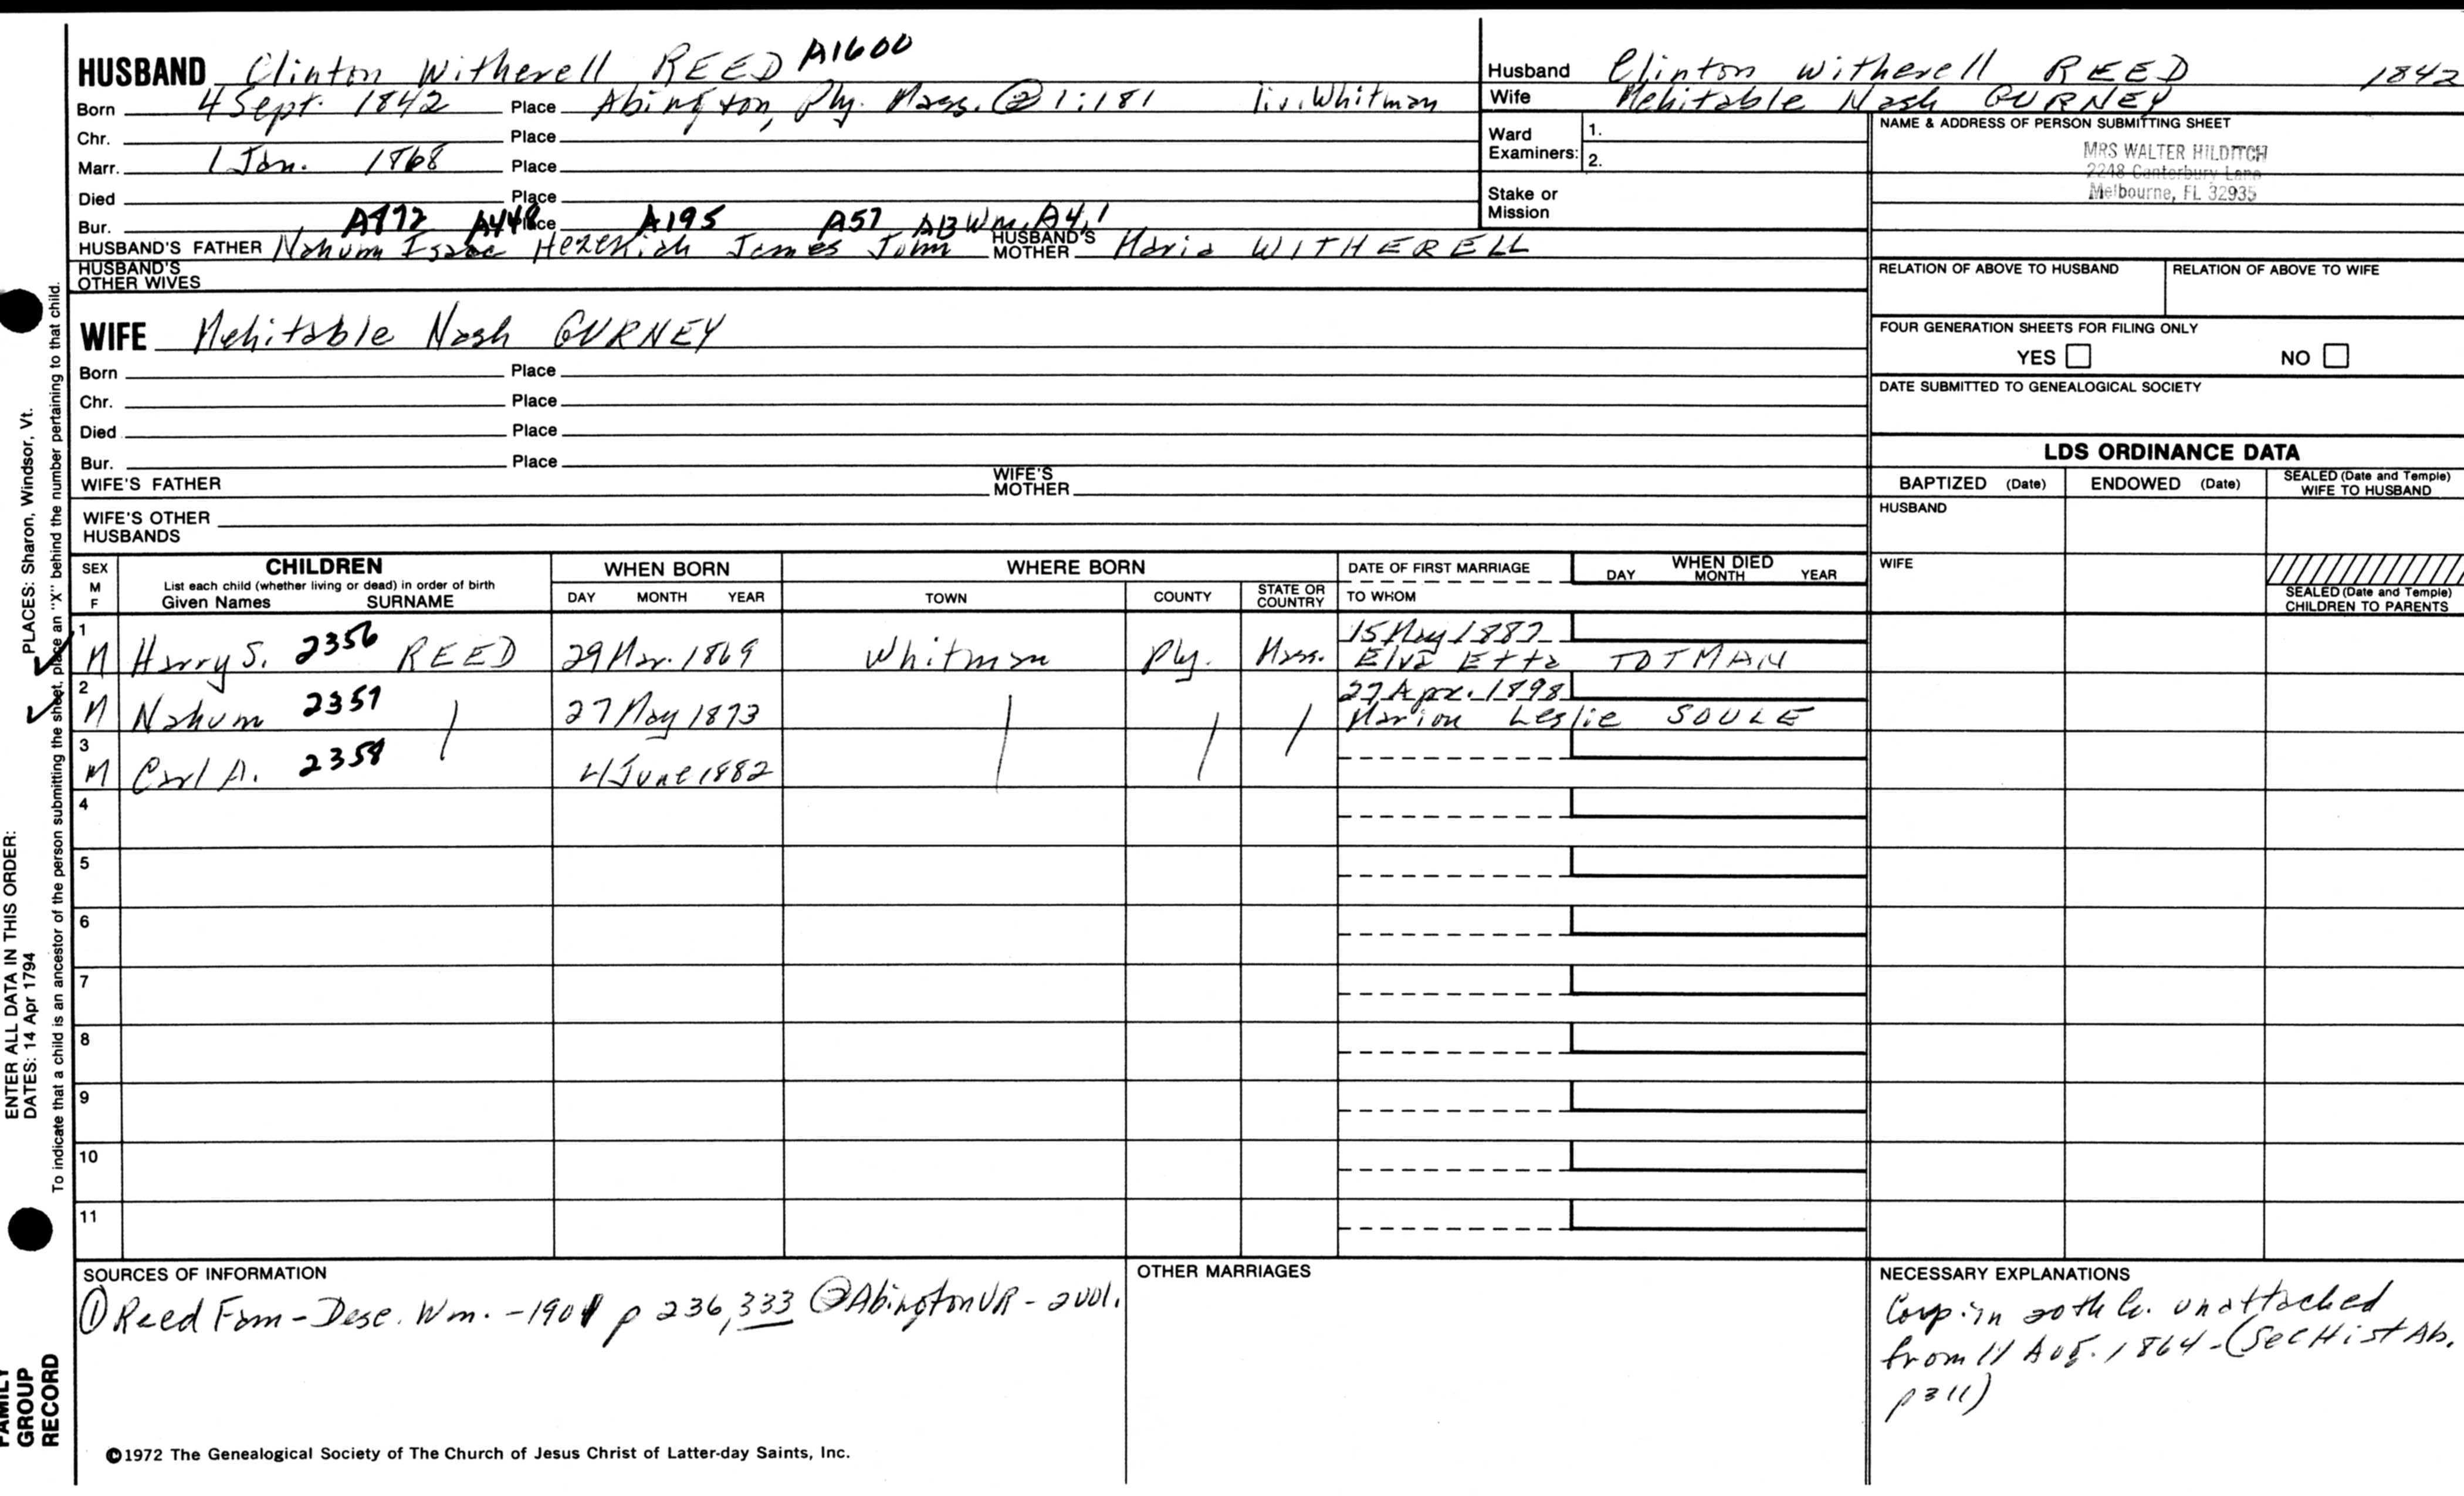 HUSBAND Clinton Witherell REED A1600
Born 4 Sept. 1842 Place Abington, Ply. Mass. @ 1:181 liv. Whitman
Chr. Place
Marr. 1 Jan. 1868 Place
Died Place
Bur. A972 A448 Place A195 A57 ABWm, A4,1
HUSBAND'S FATHER Nahum Isaac Hezekiah James John HUSBAND'S MOTHER Maria WITHERELL
HUSBAND'S OTHER WIVES
WIFE Mehitable Nash GURNEY
Born Place
Chr. Place
Died Place
Bur. Place
WIFE'S FATHER WIFE'S MOTHER
WIFE'S OTHER HUSBANDS
Husband Clinton Witherell REED 1842
Wife Mehitable Nash GURNEY
Ward Examiners: 1. 2.
Stake or Mission
NAME & ADDRESS OF PERSON SUBMITTING SHEET
MRS WALTER HILDITCH
2248 Canterbury Lane
Melbourne, FL 32935
RELATION OF ABOVE TO HUSBAND RELATION OF ABOVE TO WIFE
FOUR GENERATION SHEETS FOR FILING ONLY
YES NO
DATE SUBMITTED TO GENEALOGICAL SOCIETY
LDS ORDINANCE DATA
BAPTIZED (Date) ENDOWED (Date) SEALED (Date and Temple) WIFE TO HUSBAND
HUSBAND
WIFE
SEALED (Date and Temple) CHILDREN TO PARENTS
SEX M F CHILDREN List each child (whether living or dead) in order of birth Given Names SURNAME
WHEN BORN DAY MONTH YEAR
WHERE BORN TOWN COUNTY STATE OR COUNTRY
DATE OF FIRST MARRIAGE TO WHOM
WHEN DIED DAY MONTH YEAR
1 M Harry S. 2356 REED 29 Mar. 1869 Whitman Ply. Mass. 15 May 1887 Elva Etta TOTMAN
2 M Nahum 2357 27 May 1873 27 Apr. 1898 Marion Leslie SOULE
3 M Carl A. 2358 4 June 1882
4
5
6
7
8
9
10
11
SOURCES OF INFORMATION
① Reed Fam - Desc. Wm. - 1901 p 236, 333 ② Abington VR - 2 vol.
OTHER MARRIAGES
NECESSARY EXPLANATIONS
Corp. in 20th Co. unattached
from 11 Aug. 1864 - (See Hist Ab.
p 311)
©1972 The Genealogical Society of The Church of Jesus Christ of Latter-day Saints, Inc.
FAMILY GROUP RECORD
ENTER ALL DATA IN THIS ORDER:
DATES: 14 Apr 1794 PLACES: Sharon, Windsor, Vt.
To indicate that a child is an ancestor of the person submitting the sheet, place an "X" behind the number pertaining to that child.